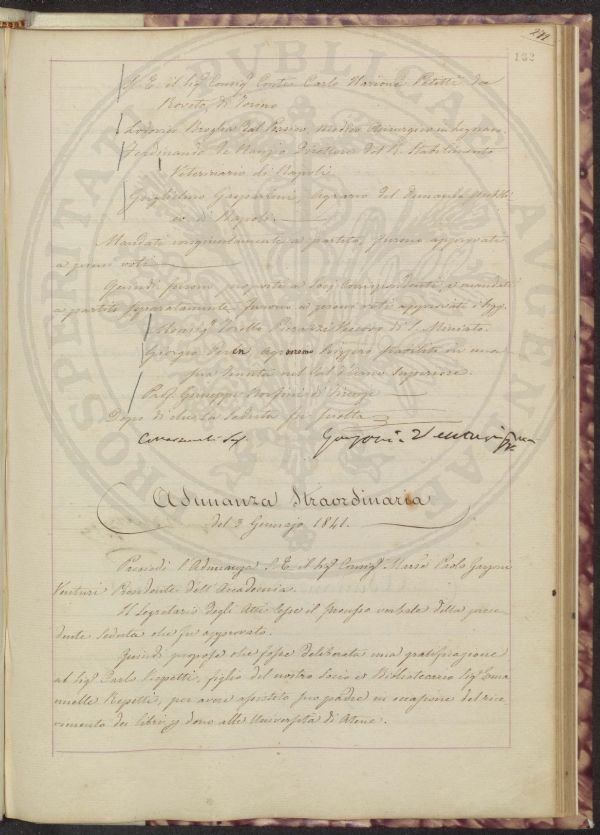 272
132
S. E. il Sig. Consig. Conte Carlo Ilarione Petitti da
Roreto, di Torino
Lodovico Broglia dal Persico, Medico Chirurgico in Legnano
Ferdinando De Nanzio Direttore del R. Stabilimento
Veterinario di Napoli
Guglielmo Gasparrini, Agrario del Demanio Pubbli
co di Napoli.
Mandati congiuntamente a partito, furono approvati
a pieni voti
Quindi furono proposti a Soci Corrispondenti, e mandati
a partito separatamente furono a pieni voti approvati i Sigg.
Monsig. Torello Pierazzi Vescovo di S. Miniato
Giorgio Perin Agronomo Svizzero stabilito in una
sua tenuta nel Val d'Arno Superiore.
Prof. Giuseppe Ponsini di Firenze
Dopo di che la Seduta fu sciolta
Adunanza Straordinaria
del 3 Gennajo 1841.
Presiedè l'Adunanza S. E. il Sig. Consig. March. Paolo Garzoni
Venturi Presidente dell'Accademia.
Il Segretario degli Atti lesse il processo verbale della prece
dente Seduta che fu approvato.
Quindi propose che fosse deliberata una gratificazione
al Sig. Carlo Repetti, figlio del nostro Socio e Bibliotecario Sig. Ema
nuelle Repetti, per avere assistito suo padre in occasione del rice
vimento dei libri p dono alle Università di Atene.
PROSPERITATI PUBLICAE AUGENDAE